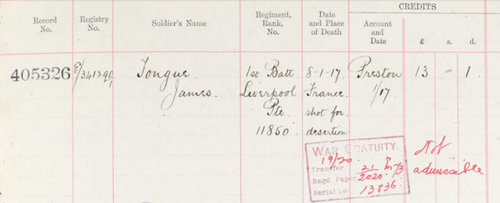 CREDITS
Record No.
Registry No.
Soldier's Name
Regiment, Rank, No.
Date and Place of Death
Account and Date
£ s. d.
405326
E/341390
Tongue
James
1st Batt
Liverpool
Pte
11850
8-1-17
France
shot for
desertion
Preston
1/17
13 - 1
WAR GRATUITY.
19/20
Transfer 21
Regd. Paper 2020
Serial No. 13836
Not
admissible